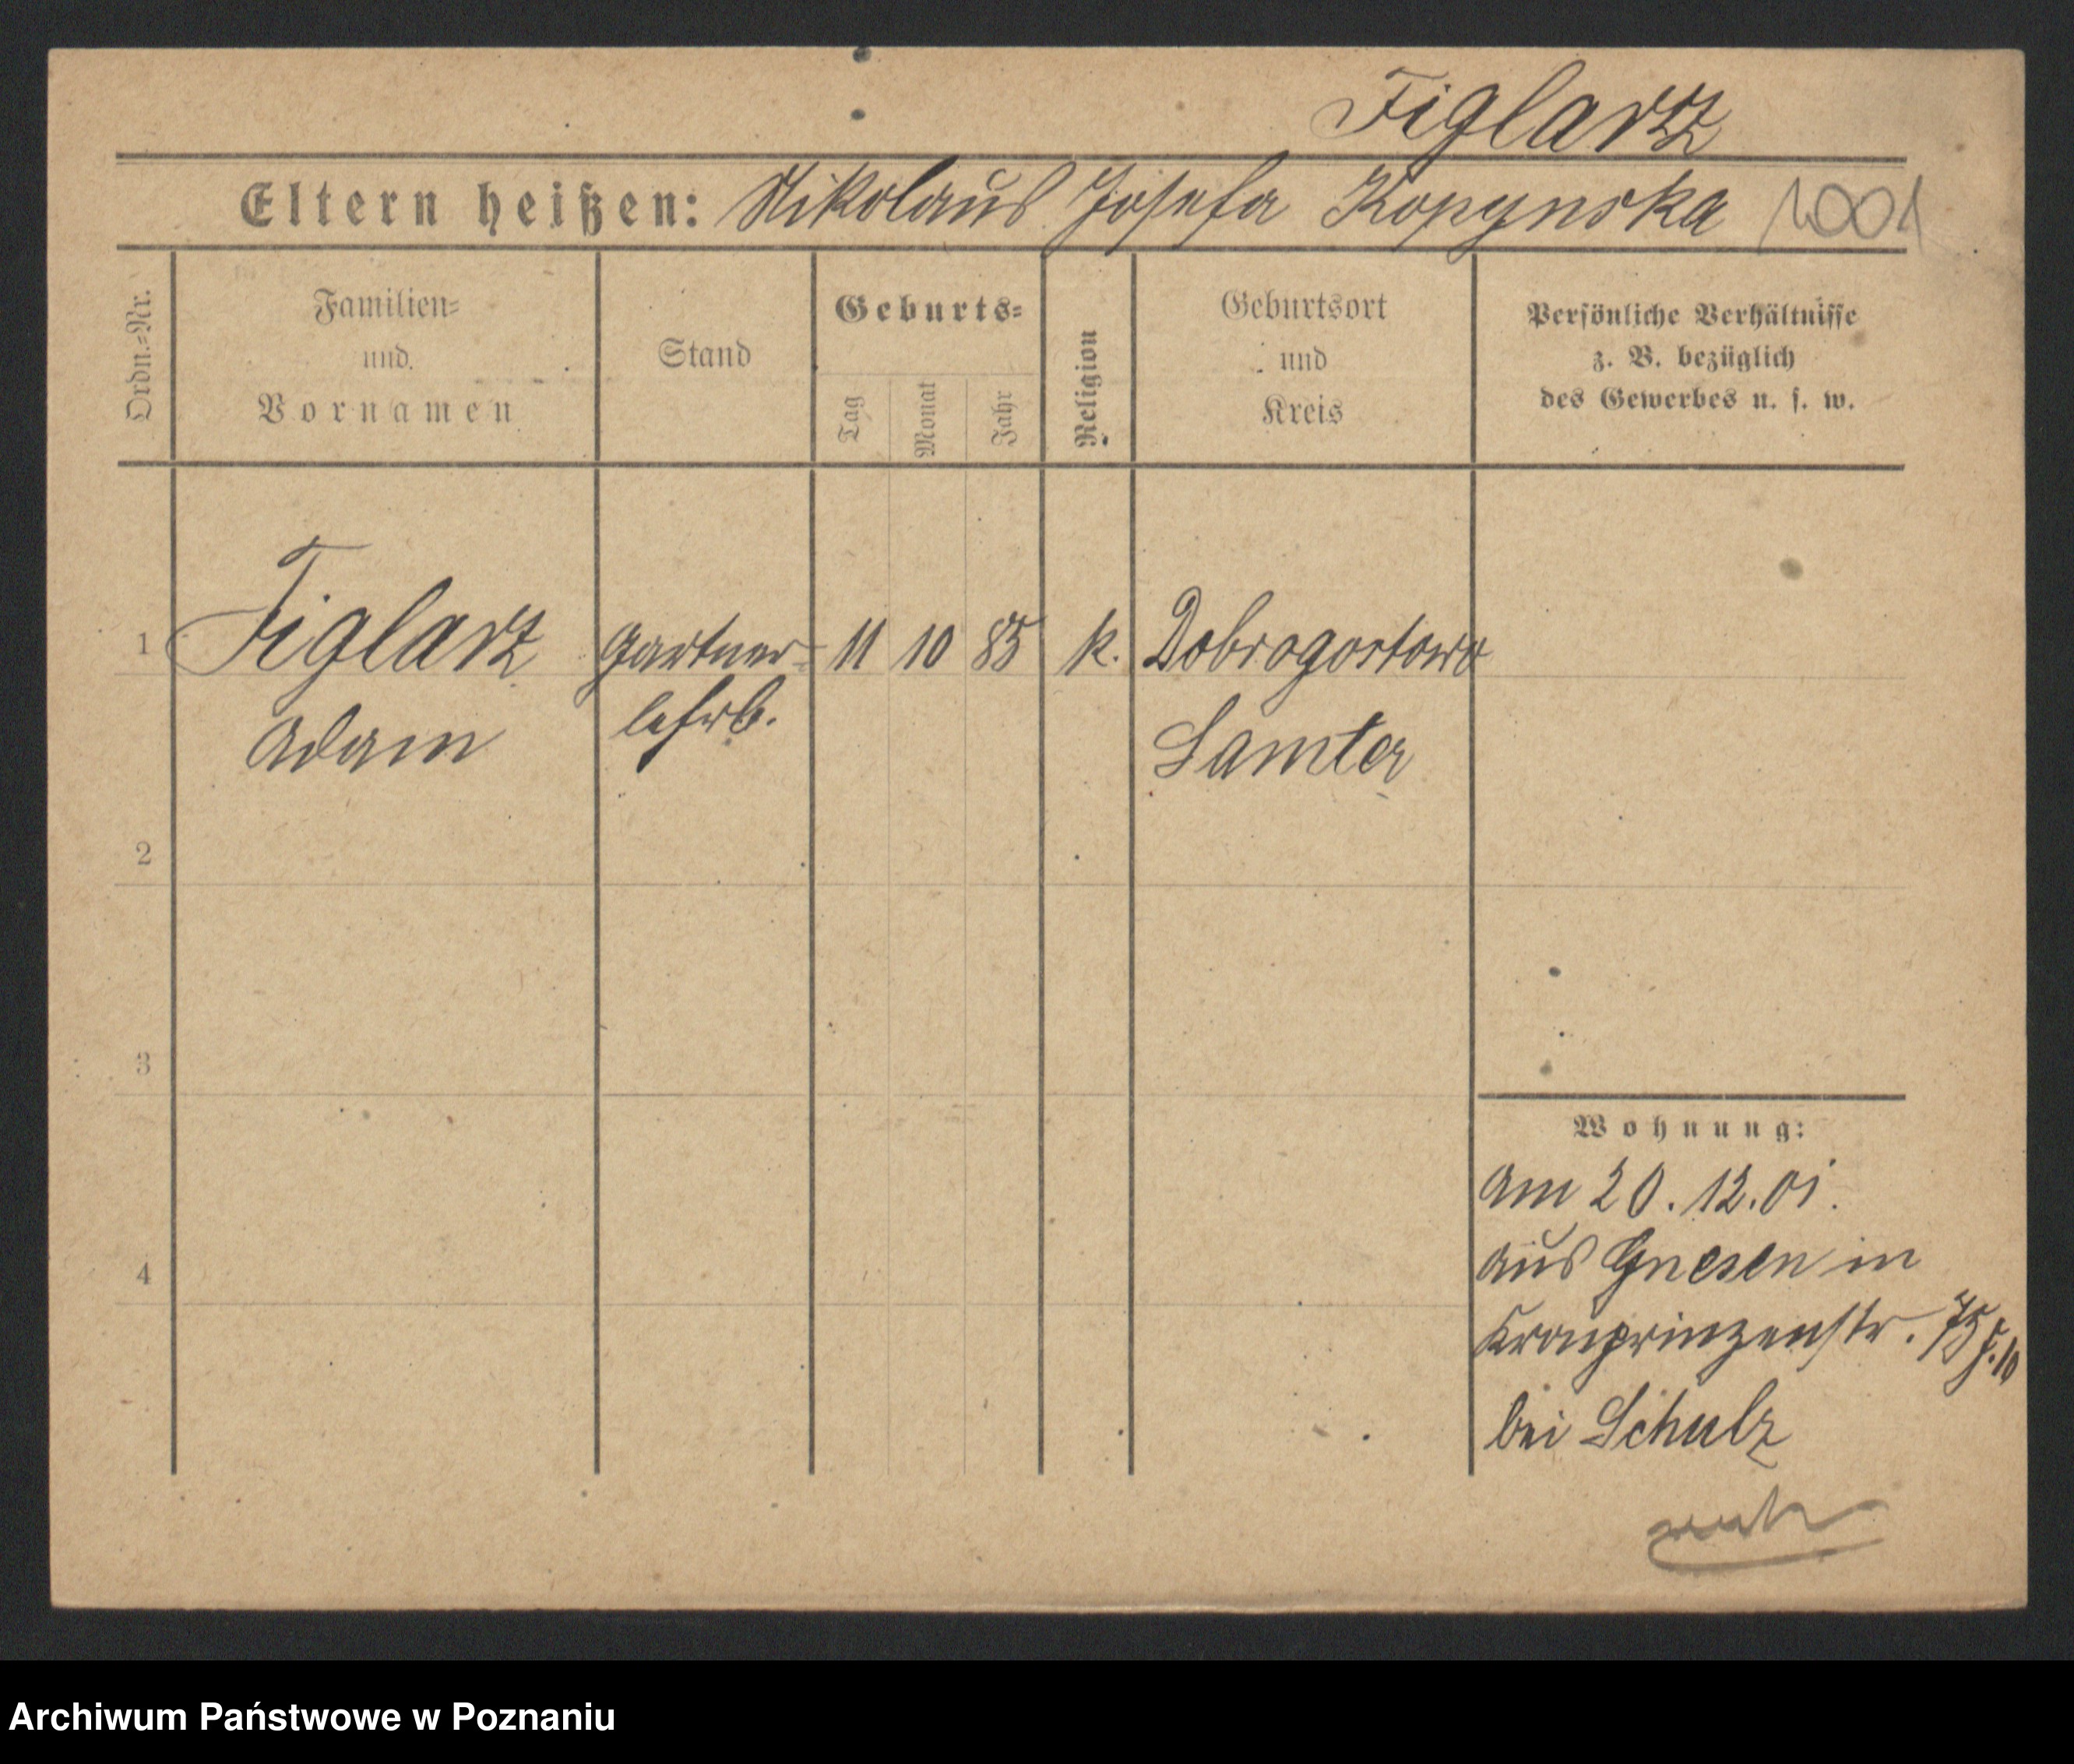 Figlarz
Eltern heißen: Nikolaus Josefa Kopynska 1001
Ordn.-Nr.
Familien-
und
Vornamen
Stand
Geburts-
Tag
Monat
Jahr
Religion
Geburtsort
und
Kreis
Persönliche Verhältnisse
z. B. bezüglich
des Gewerbes u. s. w.
1 Figlarz Gartner- 11 10 85 k. Dobrogostowo
Adam lehrb. Samter
2
3
4
Wohnung:
am 20. 12. 01.
aus Gnesen in
Kronprinzenstr. 75
bei Schulz
Archiwum Państwowe w Poznaniu